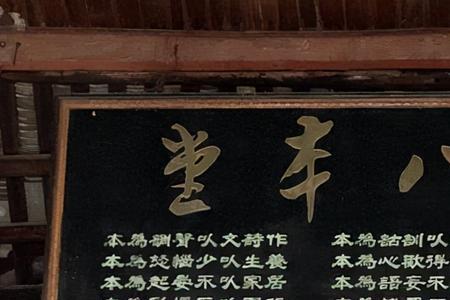 八本堂
以訓詁為本 作詩文以聲調為本
得歡心為本 養生以少惱怒為本
不妄語為本 居家以不晏起為本